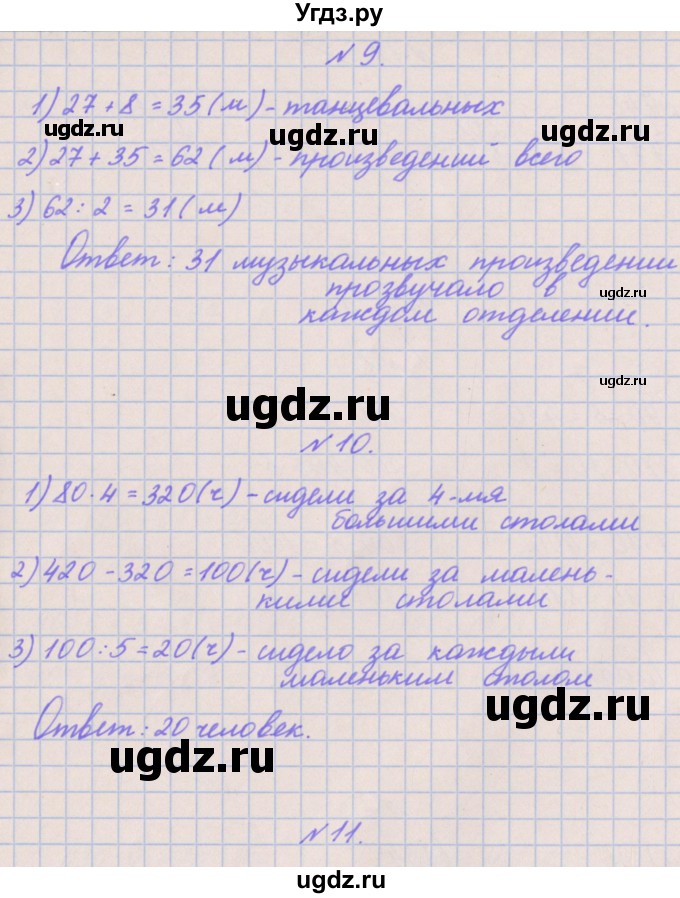 Угдз.ру
№ 9.
1) 27 + 8 = 35 (м) - танцевальных
ugdz.ru ugdz.ru
2) 27 + 35 = 62 (м) - произведений всего
ugdz.ru
3) 62 : 2 = 31 (м)
Ответ: 31 музыкальных произведении
прозвучало в ugdz.ru
каждом отделении.
ugdz.ru
ugdz.ru
№ 10.
1) 80 · 4 = 320 (ч) - сидели за 4-мя
большими столами
2) 420 - 320 = 100 (ч) - сидели за малень-
кими столами
3) 100 : 5 = 20 (ч) - сидело за каждым
маленьким столом
ugdz.ru
Ответ: 20 человек.
ugdz.ru
№ 11.
ugdz.ru